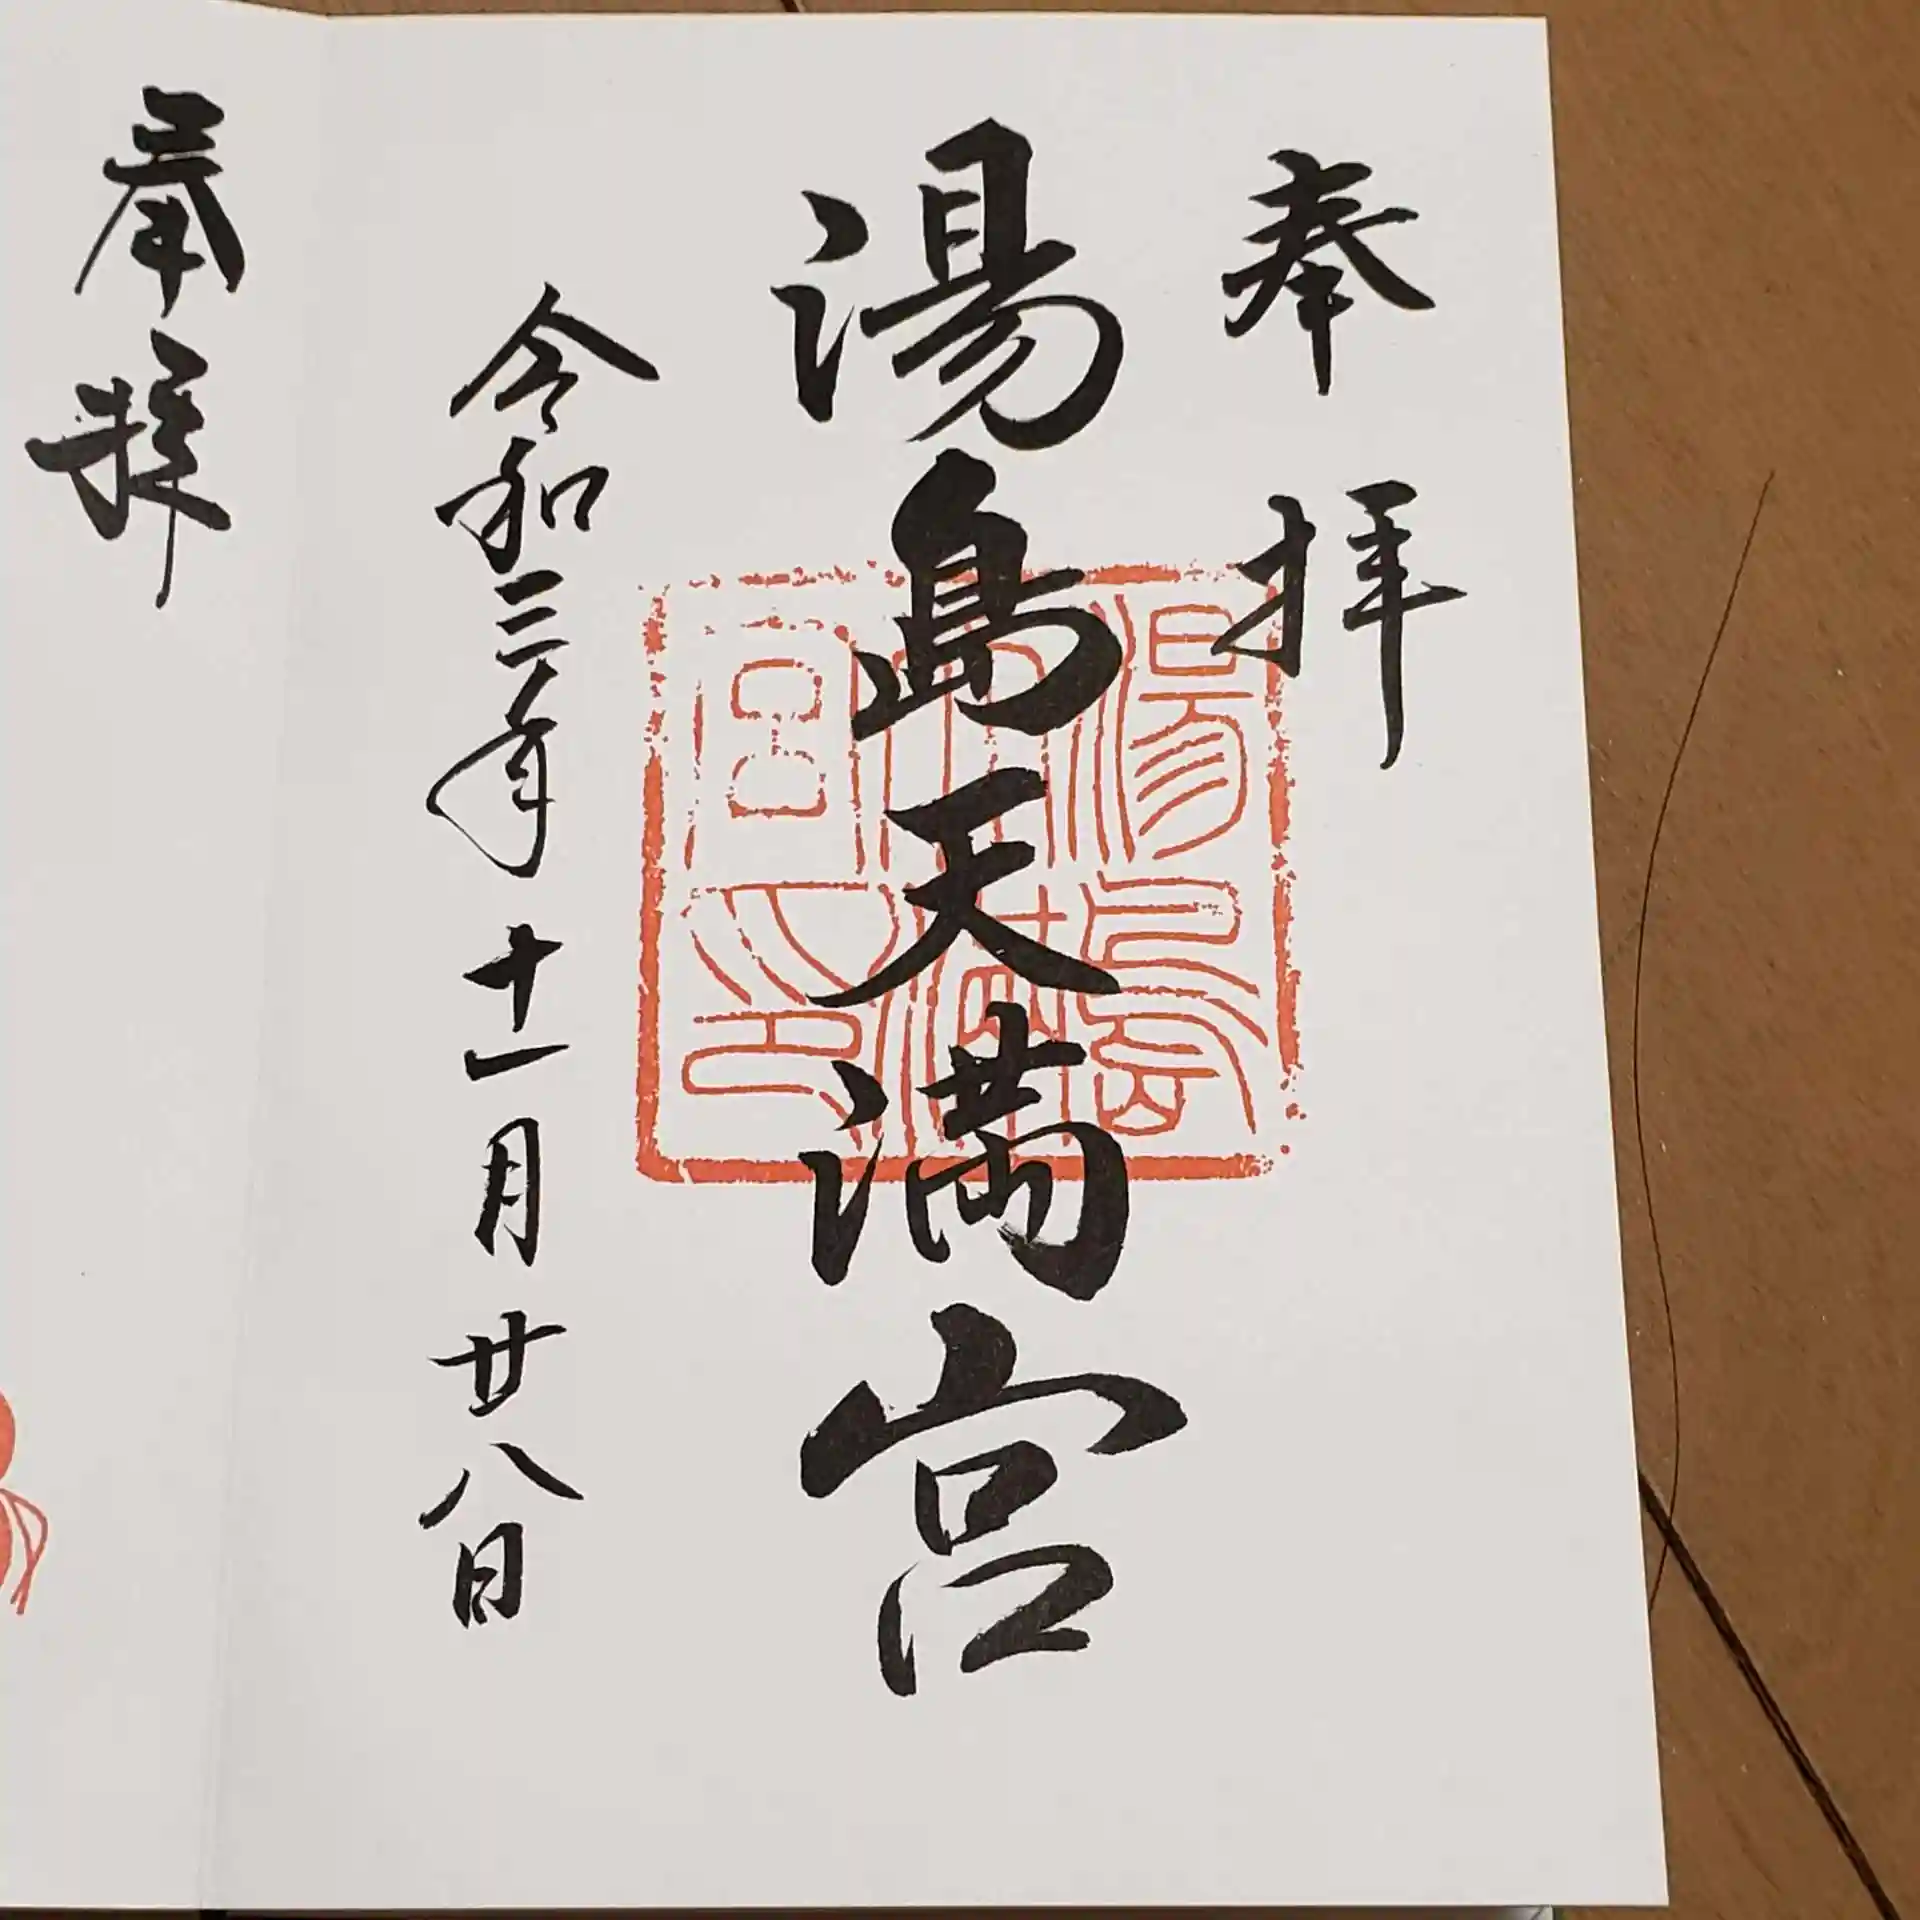 奉拝
湯島天満宮
湯島天満宮之印
令和三年十一月廿八日
奉拝